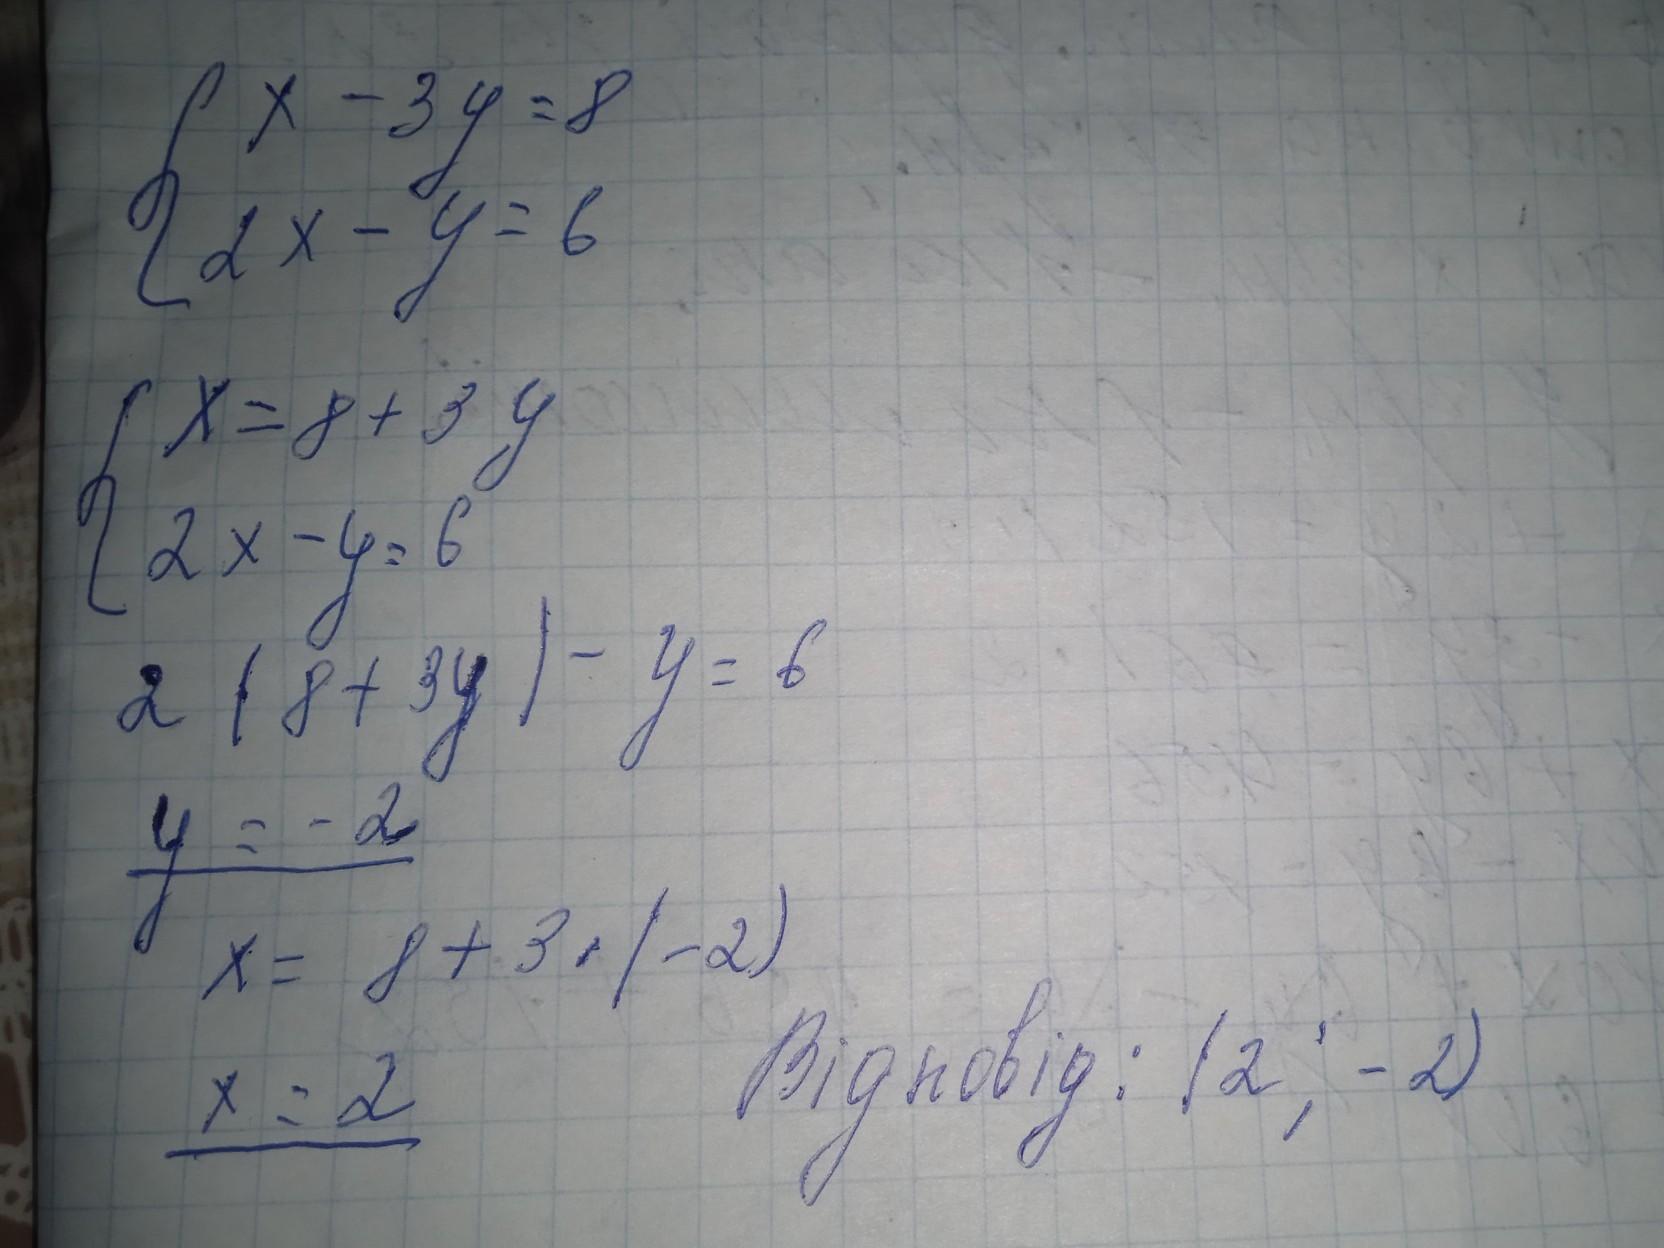 x - 3y = 8
2x - y = 6
x = 8 + 3y
2x - y = 6
2 (8 + 3y) - y = 6
y = -2
x = 8 + 3 · (-2)
x = 2
Відповідь: (2 ; -2)